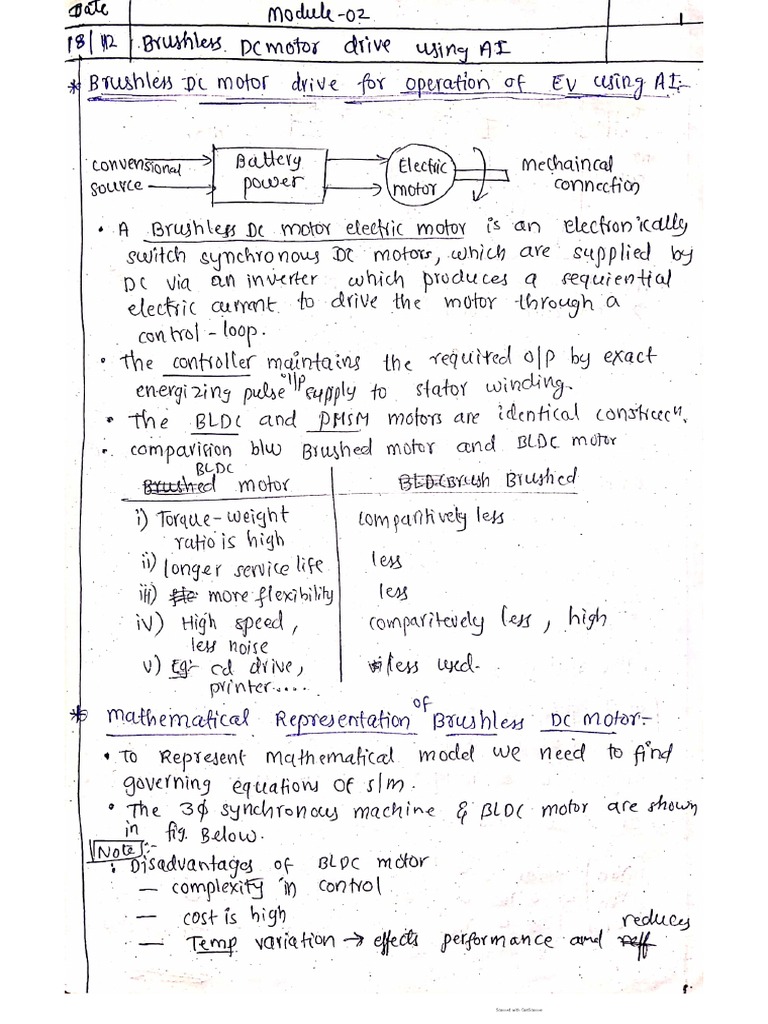 Date
Module-02
1
18/12
Brushless DC motor drive using AI
* Brushless DC motor drive for operation of EV using AI:-
convensional source
Battery power
Electric motor
mechaincal connection
• A Brushless DC motor electric motor is an electronically
switch synchronous DC motors, which are supplied by
DC via an inverter which produces a sequiential
electric current to drive the motor through a
control-loop.
• The controller maintains the required o/p by exact
energizing pulse i/p supply to stator winding.
• The BLDC and PMSM motors are identical construcⁿ.
∴ comparision b/w Brushed motor and BLDC motor
BLDC motor
Brushed
i) Torque-weight ratio is high
comparitively less
ii) longer service life
less
iii) more flexibility
less
iv) High speed, less noise
comparitevely less, high
v) Eg:- cd drive, printer....
less used.
* Mathematical Representation of Brushless DC Motor:-
• To Represent Mathematical model we need to find
governing equations of s/m.
• The 3ϕ synchronous machine & BLDC motor are shown
in fig. Below.
Note:-
• Disadvantages of BLDC motor
— complexity in control
— cost is high
— Temp variation → effects performance and reduces
Scanned with CamScanner